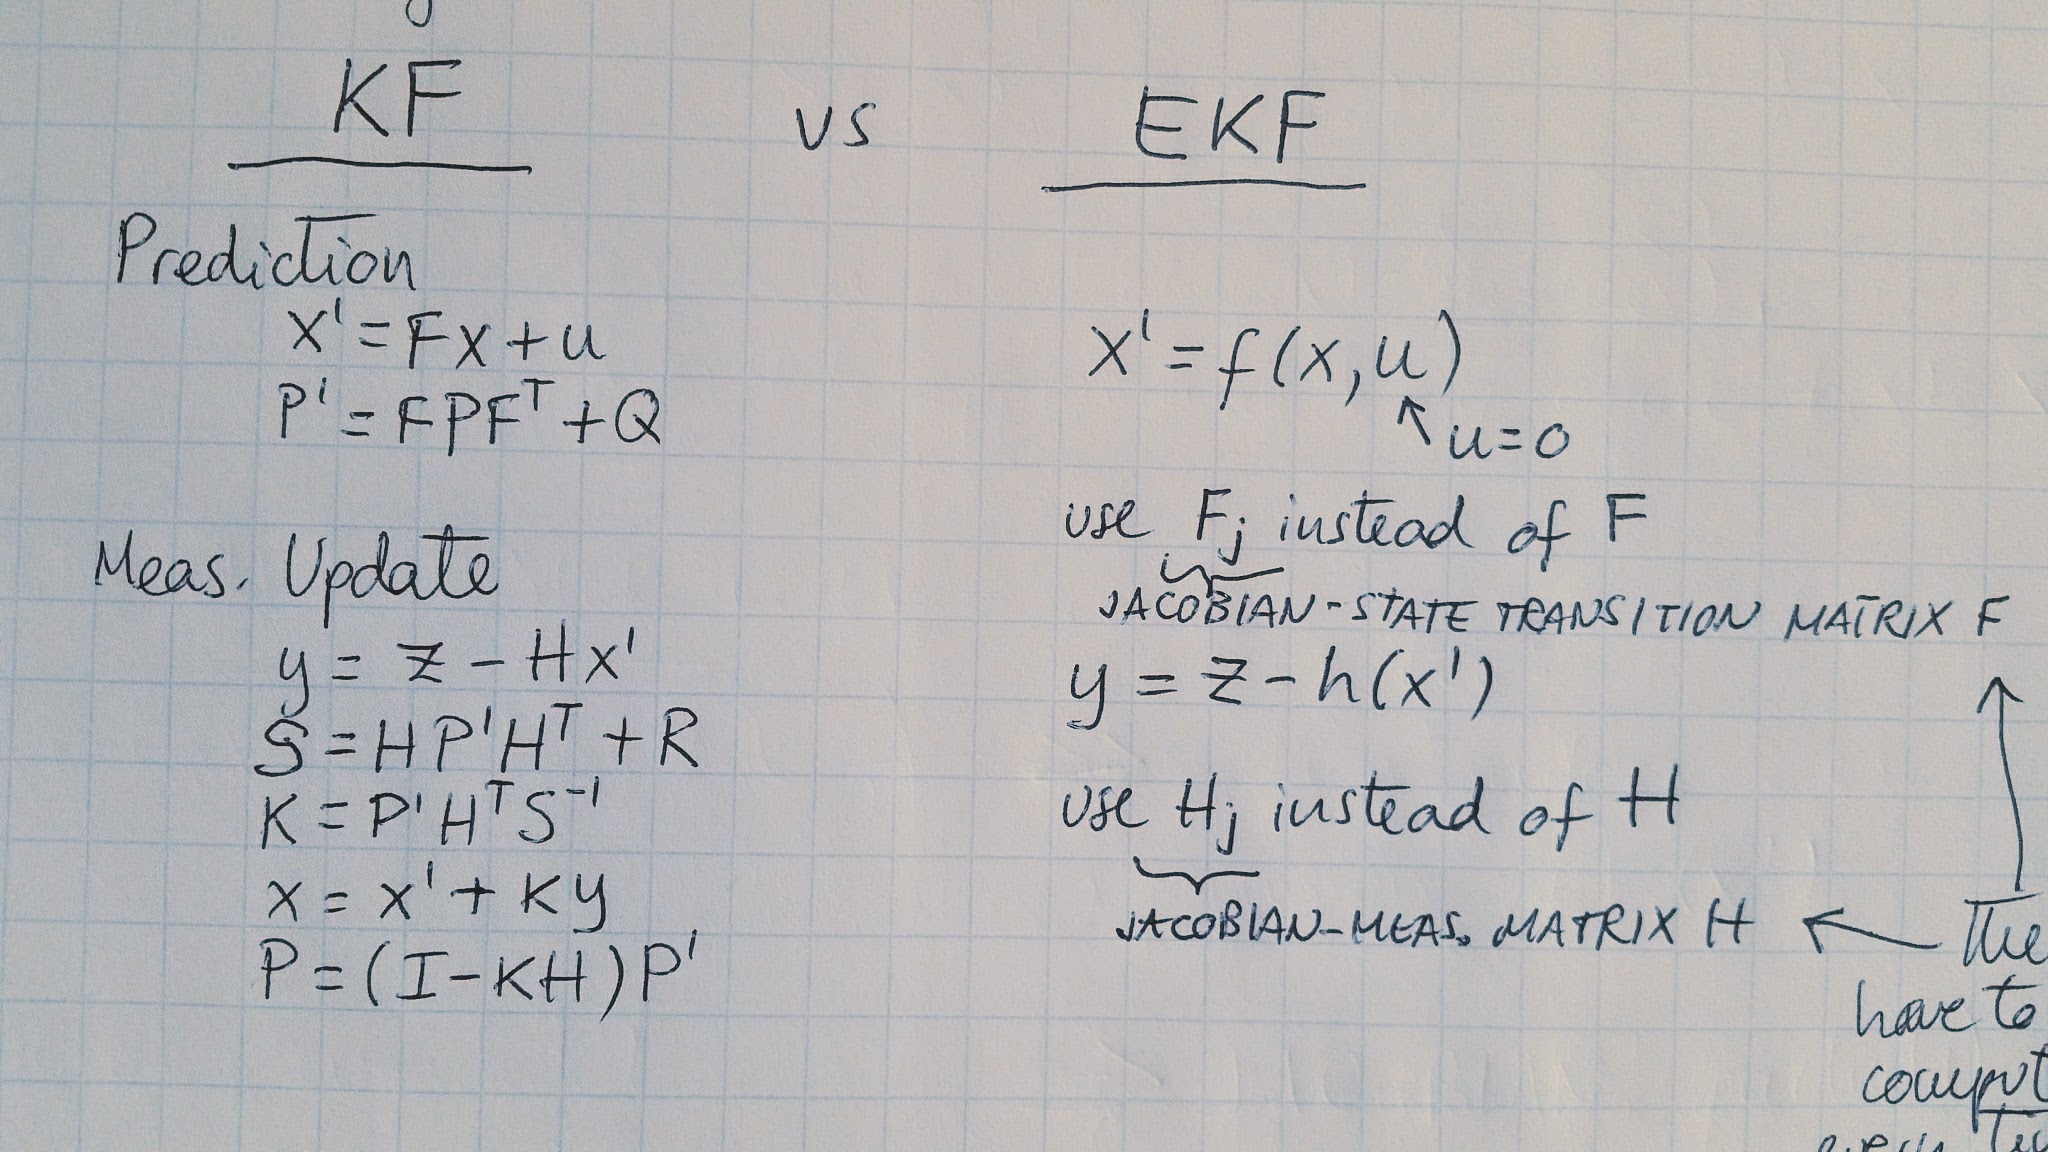 KF vs EKF
Prediction
x' = Fx + u
P' = FPFᵀ + Q
Meas. Update
y = z - Hx'
S = HP'Hᵀ + R
K = P'HᵀS⁻¹
x = x' + Ky
P = (I - KH)P'
x' = f(x, u)
u = 0
use Fj instead of F
JACOBIAN - STATE TRANSITION MATRIX F
y = z - h(x')
use Hj instead of H
JACOBIAN - MEAS. MATRIX H
have to